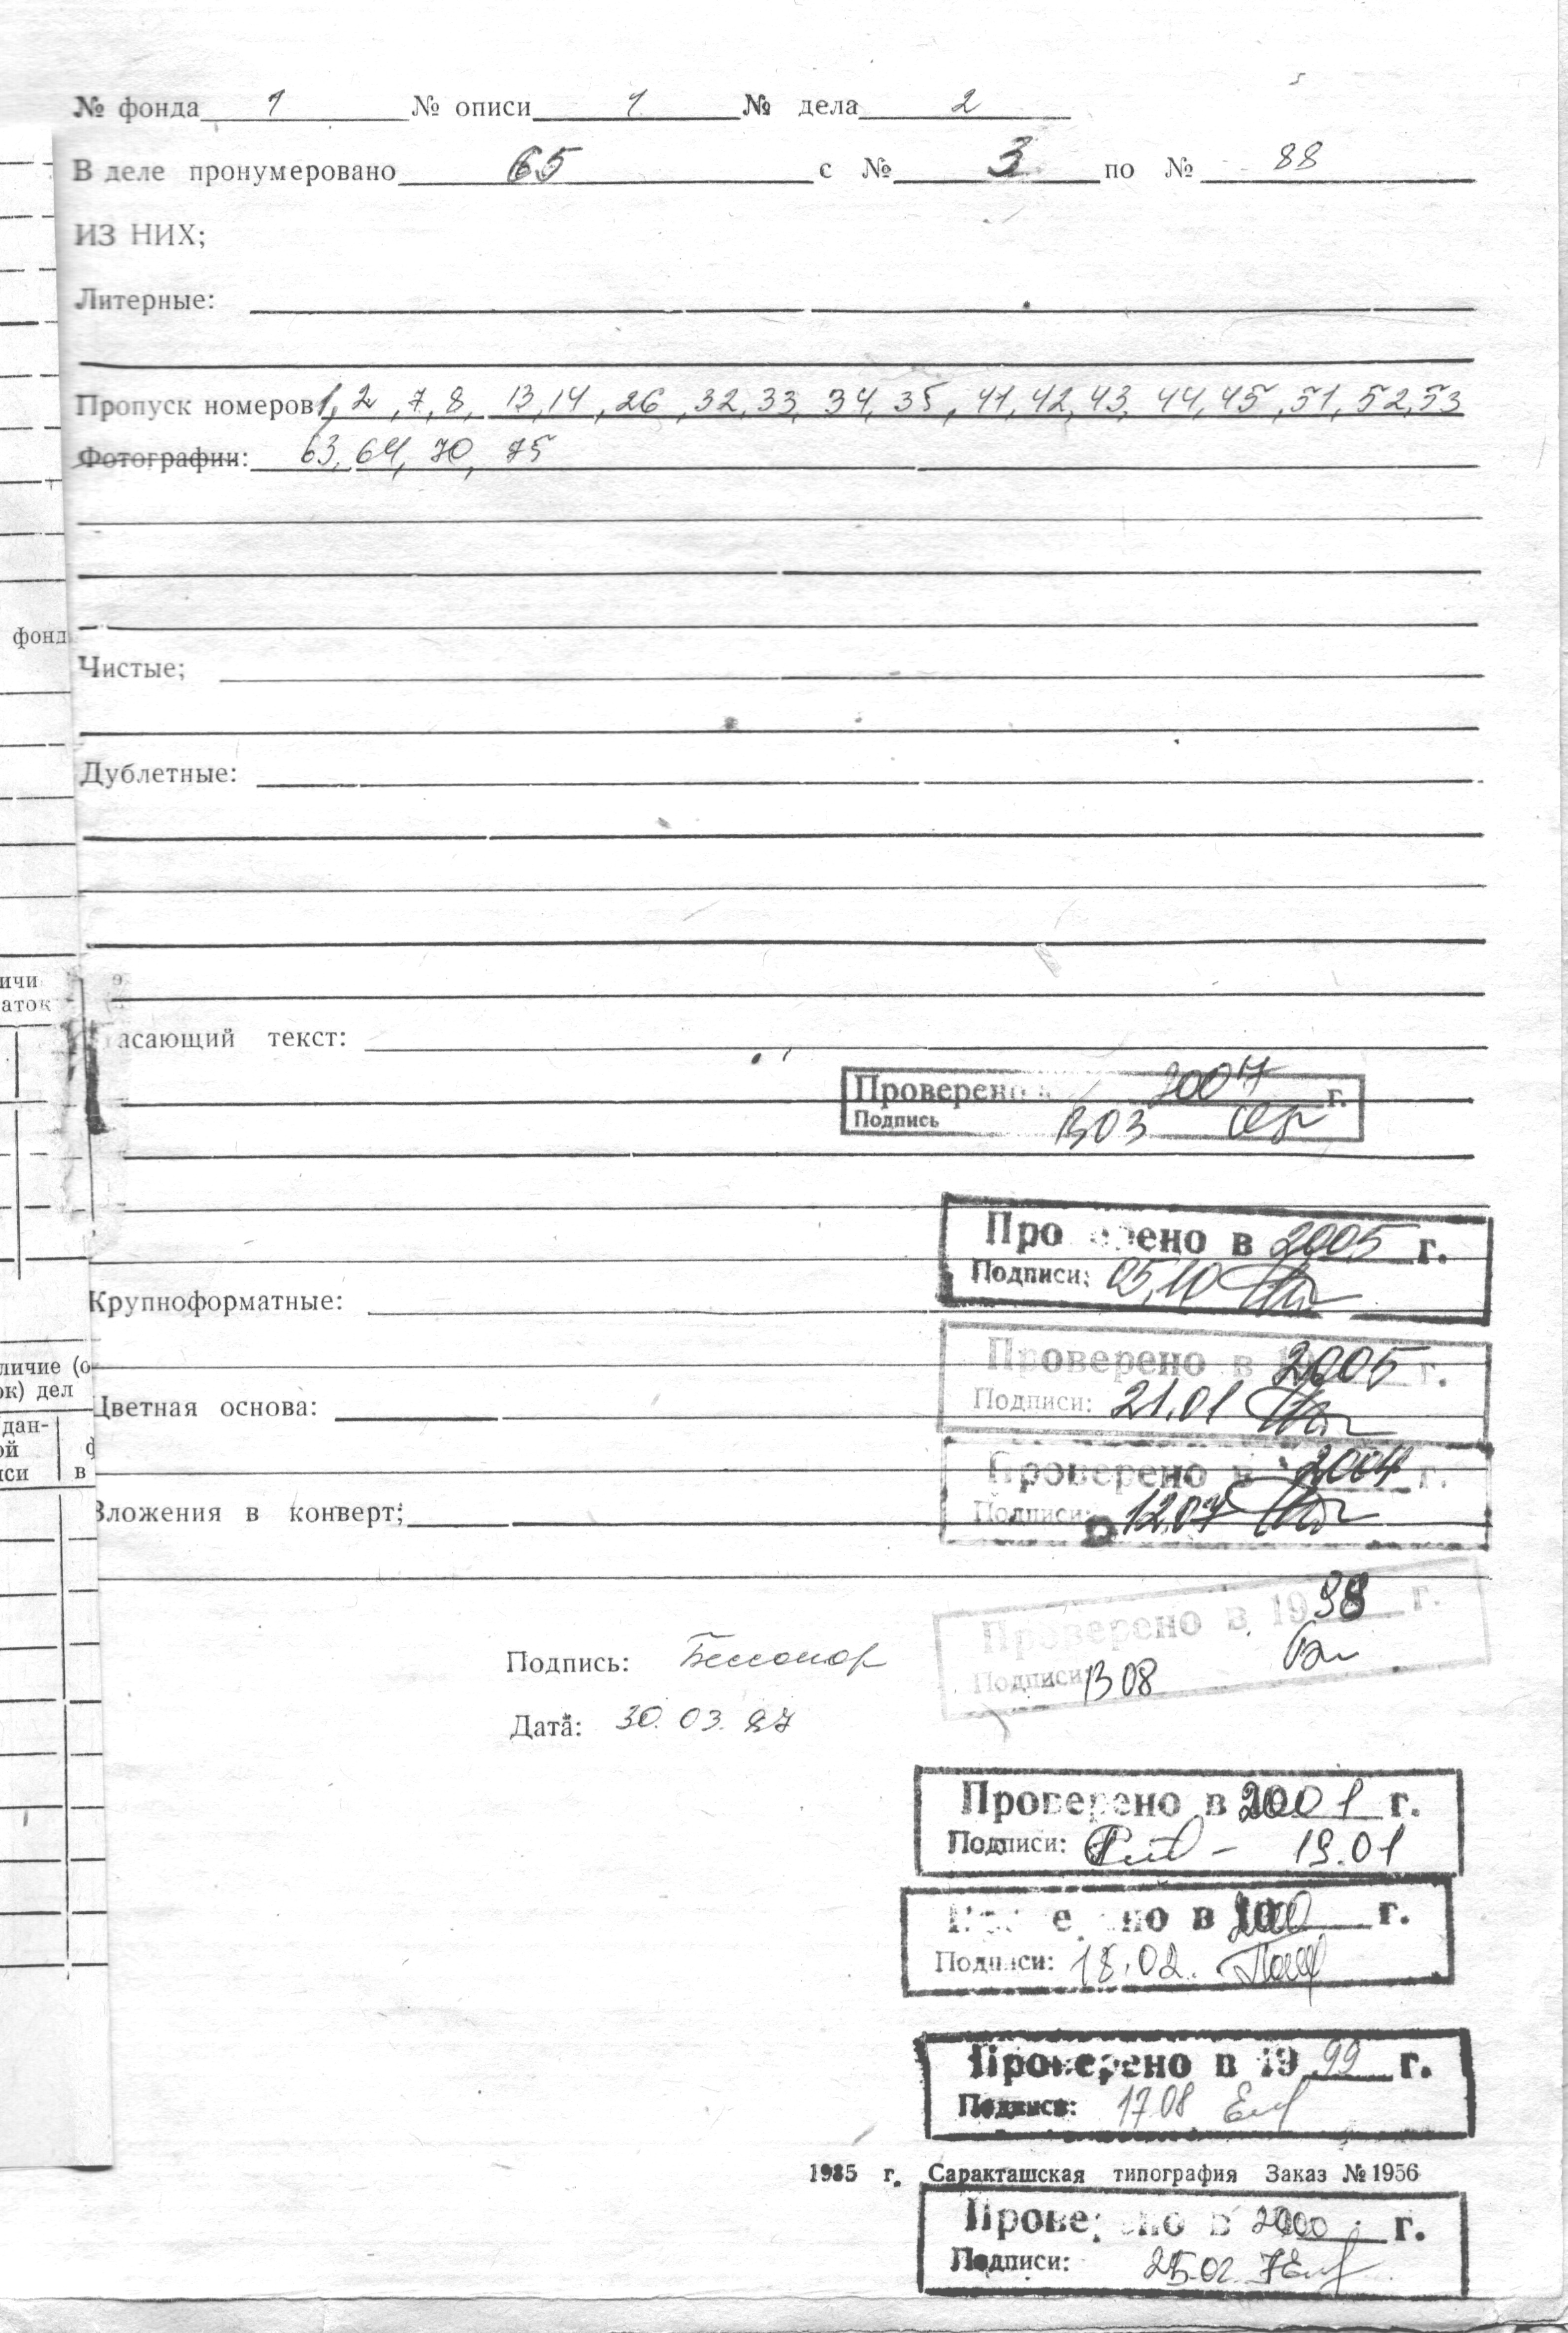 № фонда 1 № описи 1 № дела 2
В деле пронумеровано 65 с № 3 по № 88
ИЗ НИХ;
Литерные:
Пропуск номеров 1, 2, 7, 8, 13, 14, 26, 32, 33, 34, 35, 41, 42, 43, 44, 45, 51, 52, 53
Фотографии: 63, 64, 70, 75
фонд
Чистые;
Дублетные:
ичи
аток
асающий текст:
Проверено 2007 г.
Подпись 13 03
Проверено в 2005 г.
Подписи: 05.10
Крупноформатные:
Проверено в 2005 г.
личие (о
ок) дел
Подписи: 21.01
Цветная основа:
дан-
ой ф
иси в
Проверено в 2004 г.
Подписи: 12.07
Вложения в конверт;
Проверено в 1998 г.
Подписи: 13 08
Подпись:
Дата: 30.03.87
Проверено в 2001 г.
Подписи: 19.01
Проверено в 2000 г.
Подписи: 18.02.
Проверено в 1999 г.
Подписи: 17 08
1985 г. Саракташская типография Заказ № 1956
Проверено в 2000 г.
Подписи: 25.02.